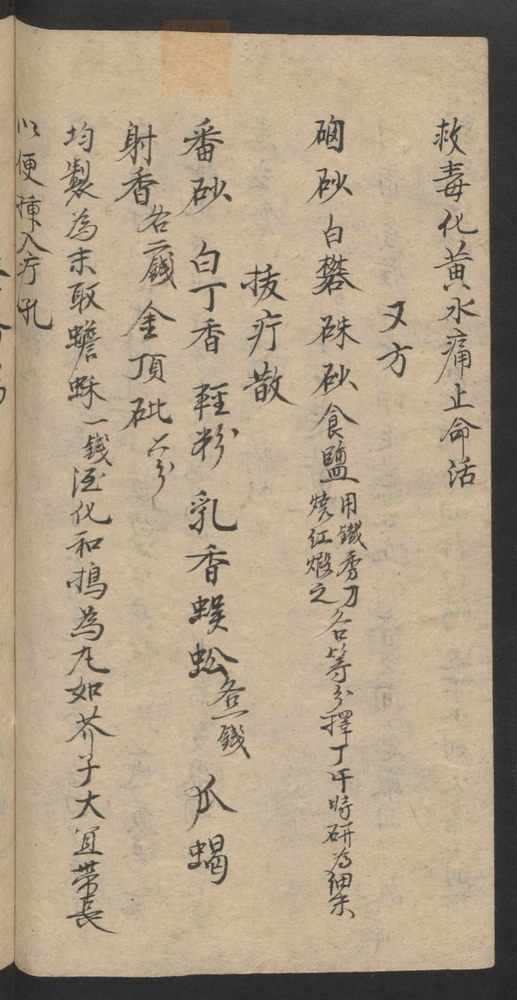 救毒化黃水痛止命活
又方
硇砂白礬硃砂食鹽用鐵秀刀燒紅煅之各等分擇丁午時研為細末
拔疔散
番砂 白丁香 輕粉 乳香蜈蚣各一錢 爪蝎
射香各二錢金頂砒六分
均製為末取蟾酥一錢酒化和搗為丸如芥子大宜帶長
以便插入疔孔